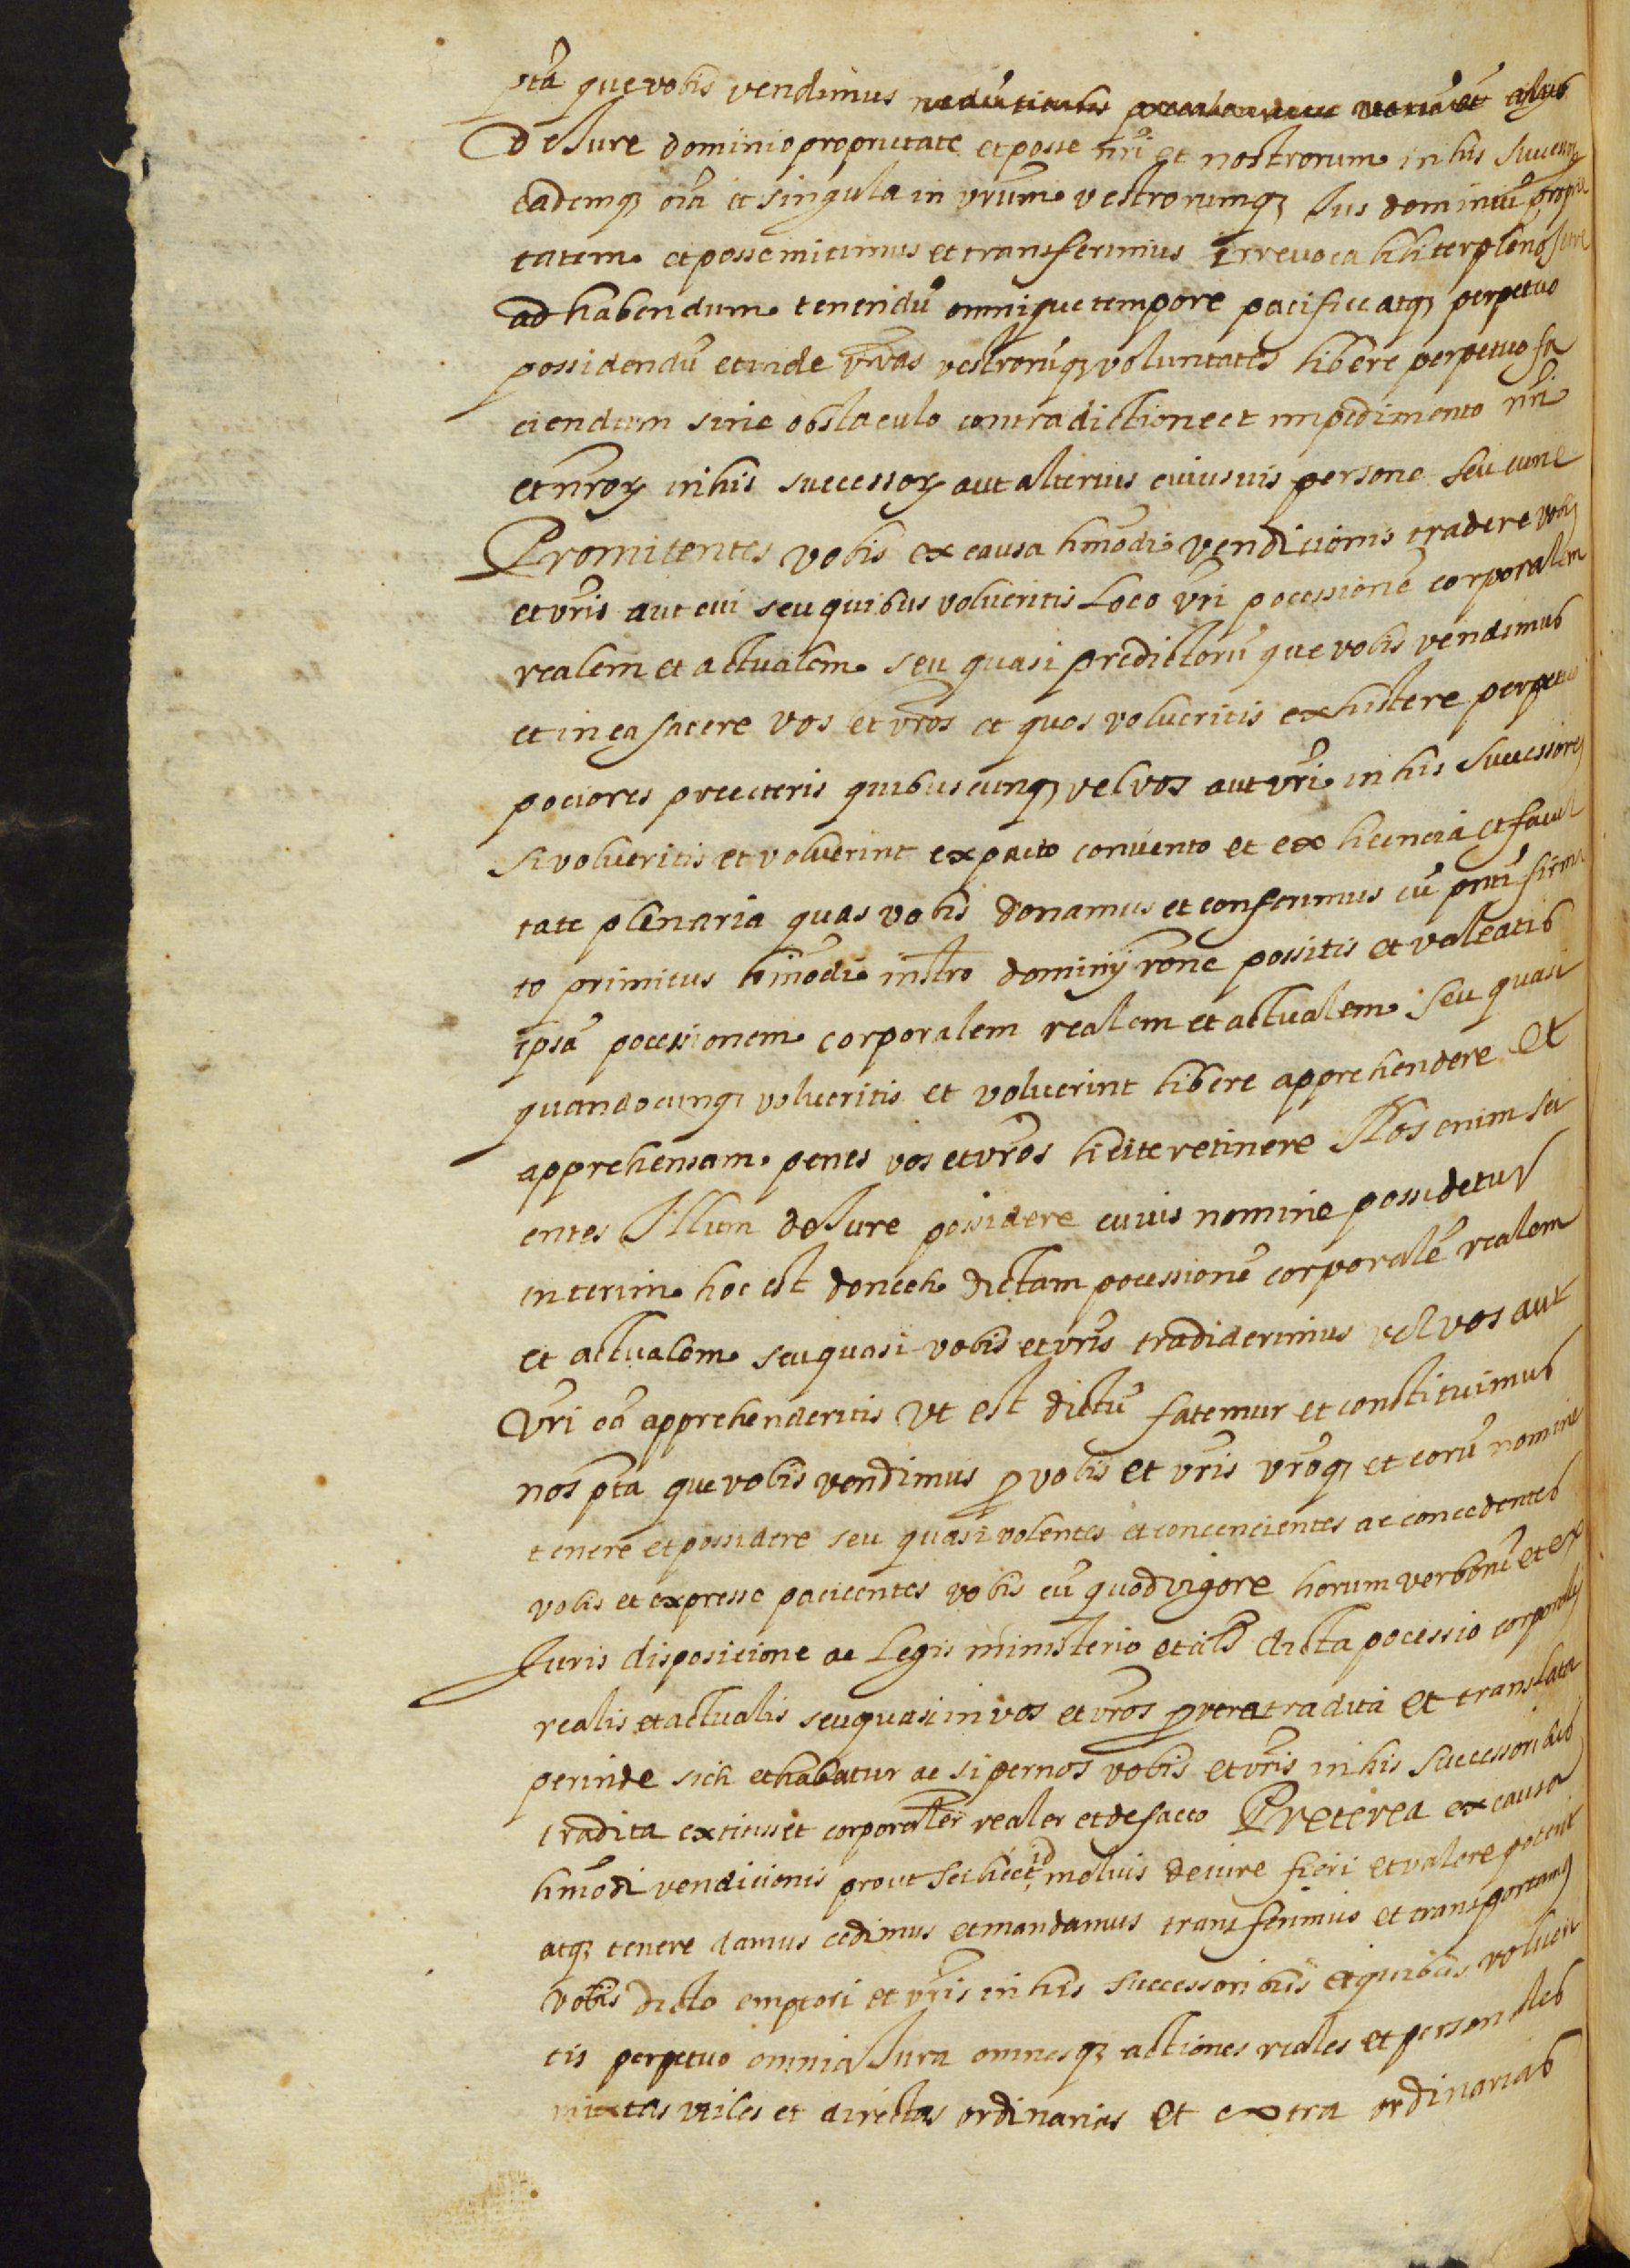 pta que vobis vendimus
De Jure dominio proprietate et posse nri et nostrorum in his success
eademqz oia et singula in vrum vestrorumqz Jus dominiu proprie
tatem et posse mitimus et transferimus Irrevocabiliter pleno Jure
ad habendum tenendu omnique tempore pacifice atqz perpetuo
possidendu et inde vras vestroruqz voluntates libere perpetuo fa
ciendum sine obstaculo contradictione et impedimento nri
et nror in his successor aut alterius cuiusuis persone seu cunc
Promitentes vobis ex causa hmodi vendicionis tradere vobis
et vris aut cui seu quibus volueritis Loco vri pocessione corporalem
realem et actualem seu quasi predictoru que vobis vendimus
et in ea facere vos et vros et quos volueritis exhistere perpetuo
pociores preceteris quibuscunqz vel vos aut vri in his Successores
si volueritis et voluerint ex pacto convento et ex licencia et facul
tate plenaria quas vobis donamus et conferimus cu pnti firma
to primitus hmodi instro dominij rone possitis et valeatis
ipsa pocessionem corporalem realem et actualem seu quasi
quandocunqz volueritis et voluerint libere apprehendere et
apprehensam penes vos et vros licite retinere Nos enim sci
entes Illum de Jure possidere cuius nomine possidetur
interim hoc est donech dictam pocessione corporale realem
et actualem seu quasi vobis et vris tradiderimus vel vos aut
vri ea apprehenderitis vt est dictu fatemur et constituimus
nos pta que vobis vendimus p vobis et vris vroqz et eoru nomine
tenere et possidere seu quasi volentes et concencientes ac concedentes
vobis et expresse paciscentes vobis cu quod vigore horum verboru et ex
Juris disposicione ac Legis ministerio et als dicta pocessio corporalis
realis et actualis seu quasi in vos et vros p vera tradita et translata
perinde sich et habeatur ac si per nos vobis et vris in his Successoribus
tradita extitisset corporaler realer et de facto Preterea ex causa
hmodi vendicionis prout scilicet id melius de iure fieri et valere poterit
atqz tenere damus cedimus et mandamus transferimus et transportamus
vobis dicto emptori et vris in his Successoribus et quibus volueri
tis perpetuo omnia Jura omnesqz actiones reales et personales
mixtas vtiles et directas ordinarias et extra ordinarias